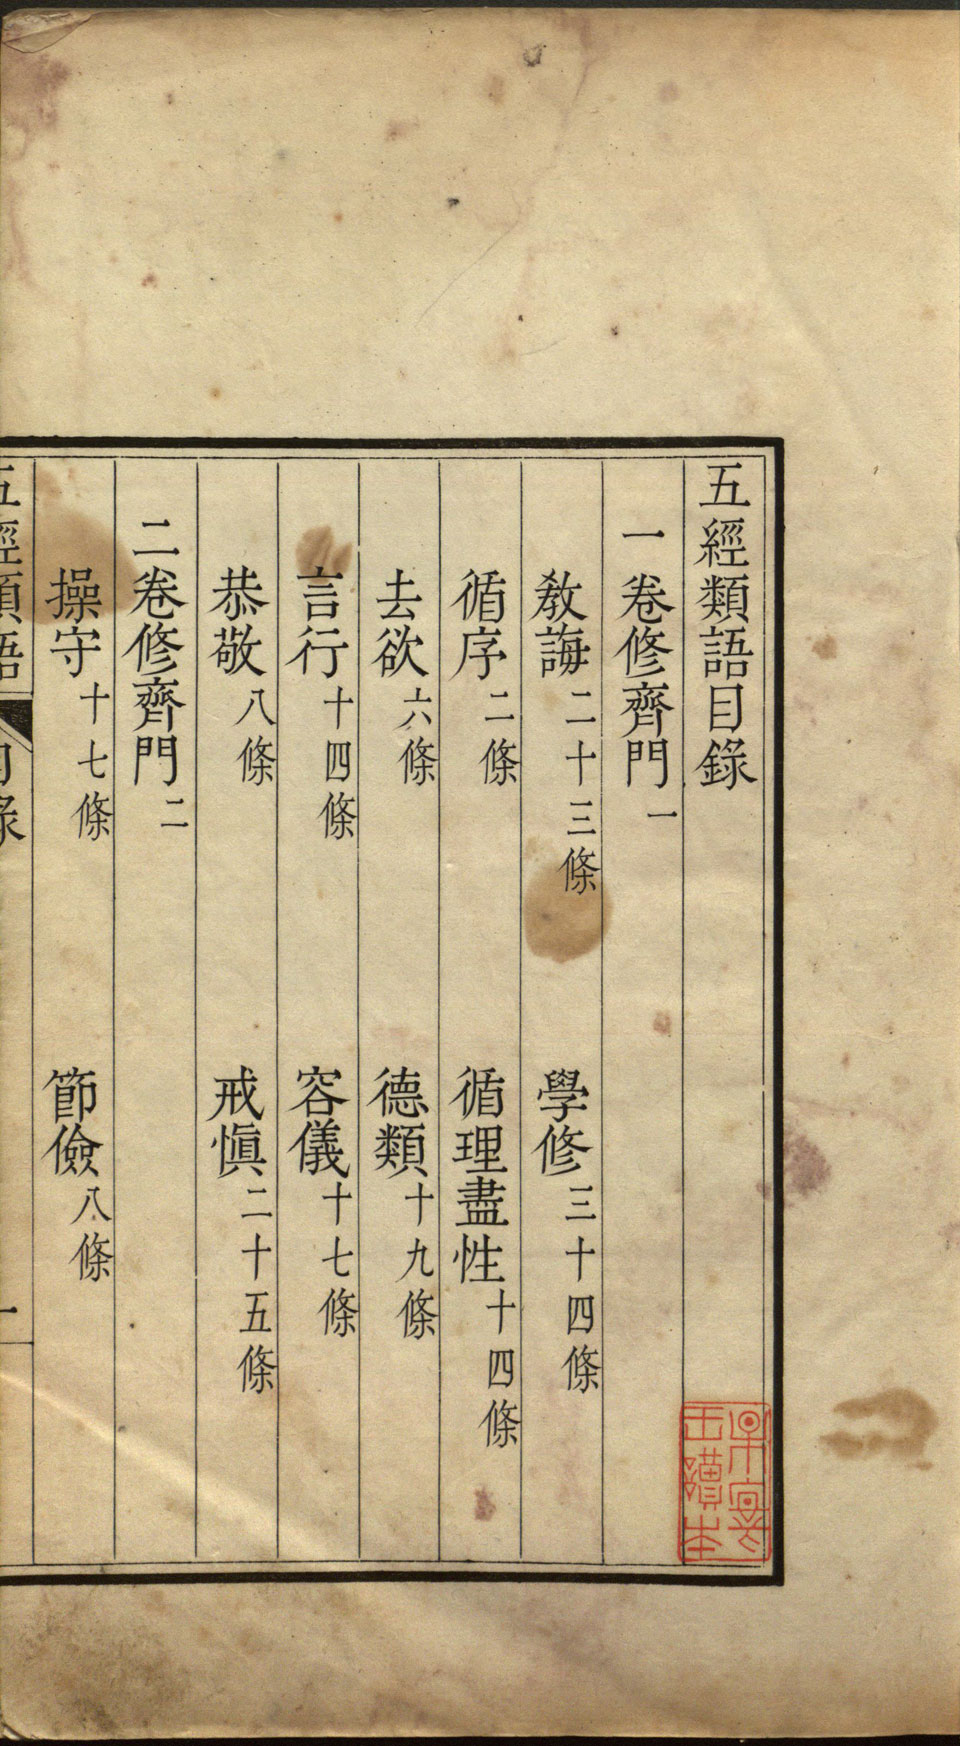 五經類語目錄
一卷修齊門一
教誨二十三條 學修三十四條
循序二條 循理盡性十四條
去欲六條 德類十九條
言行十四條 容儀十七條
恭敬八條 戒慎二十五條
二卷修齊門二
操守十七條 節儉八條
五經類語 目錄 一